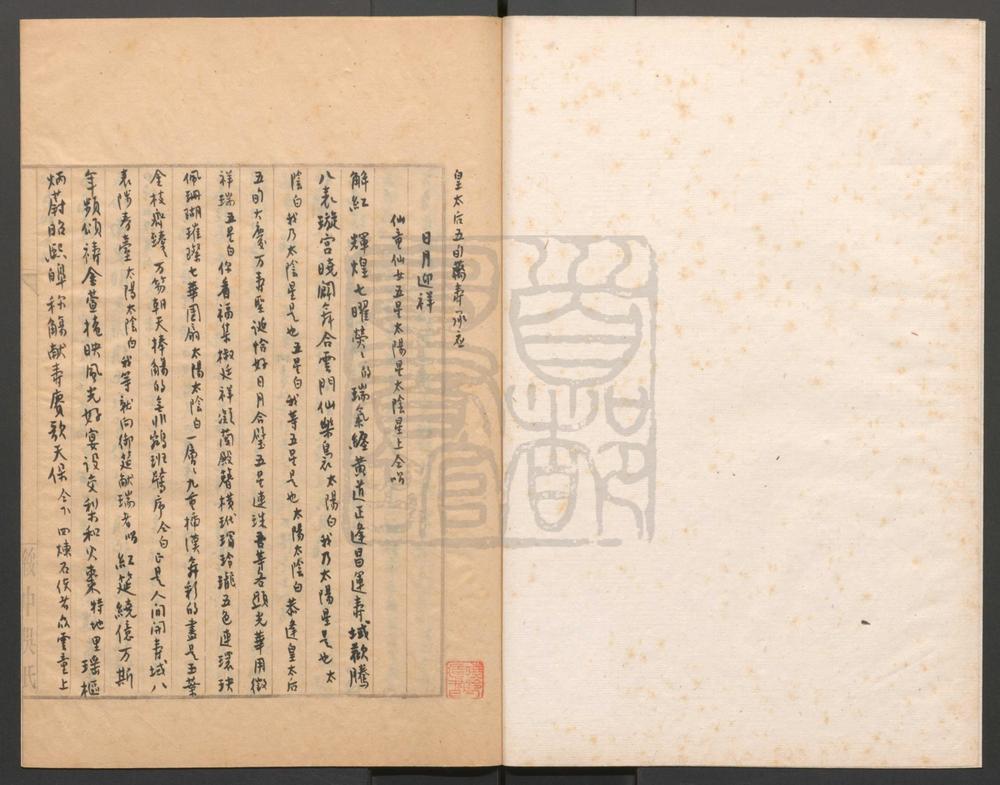 皇太后五旬萬壽承应
日月迎祥
仙童仙女五星太陽星太陰星上仝唱
解紅 輝煌七曜勞〻的瑞氣纏黄道正逢昌運壽域歡騰
八表璇宫曉闢舞合雲門仙樂裊太陽白我乃太陽星是也太
陰白我乃太陰星是也五星白我等五星是也太陽太陰白恭逢皇太后
五旬大慶万壽聖誕恰好日月合璧五星連珠吾等各顯光華用徵
祥瑞五星白你看福集椒庭祥凝蘭殿簪横玳瑁玲瓏五色連環玦
佩珊瑚璀璨七華團扇太陽太陰白一層〻九重插漢舞彩的盡是玉葉
金枝齊臻〻万笏朝天捧觴的無非鵷班鷺序仝白正是人間開壽域八
表陽春臺太陽太陰白我等就向御筵献瑞者唱紅筵繞億万斯
年頻頌禱金萱掩映風光好宴設交梨和火棗特地里瑶樞
炳蔚昭熙皞称觴献壽賡歌天保仝下四煉石伕者众雲童上